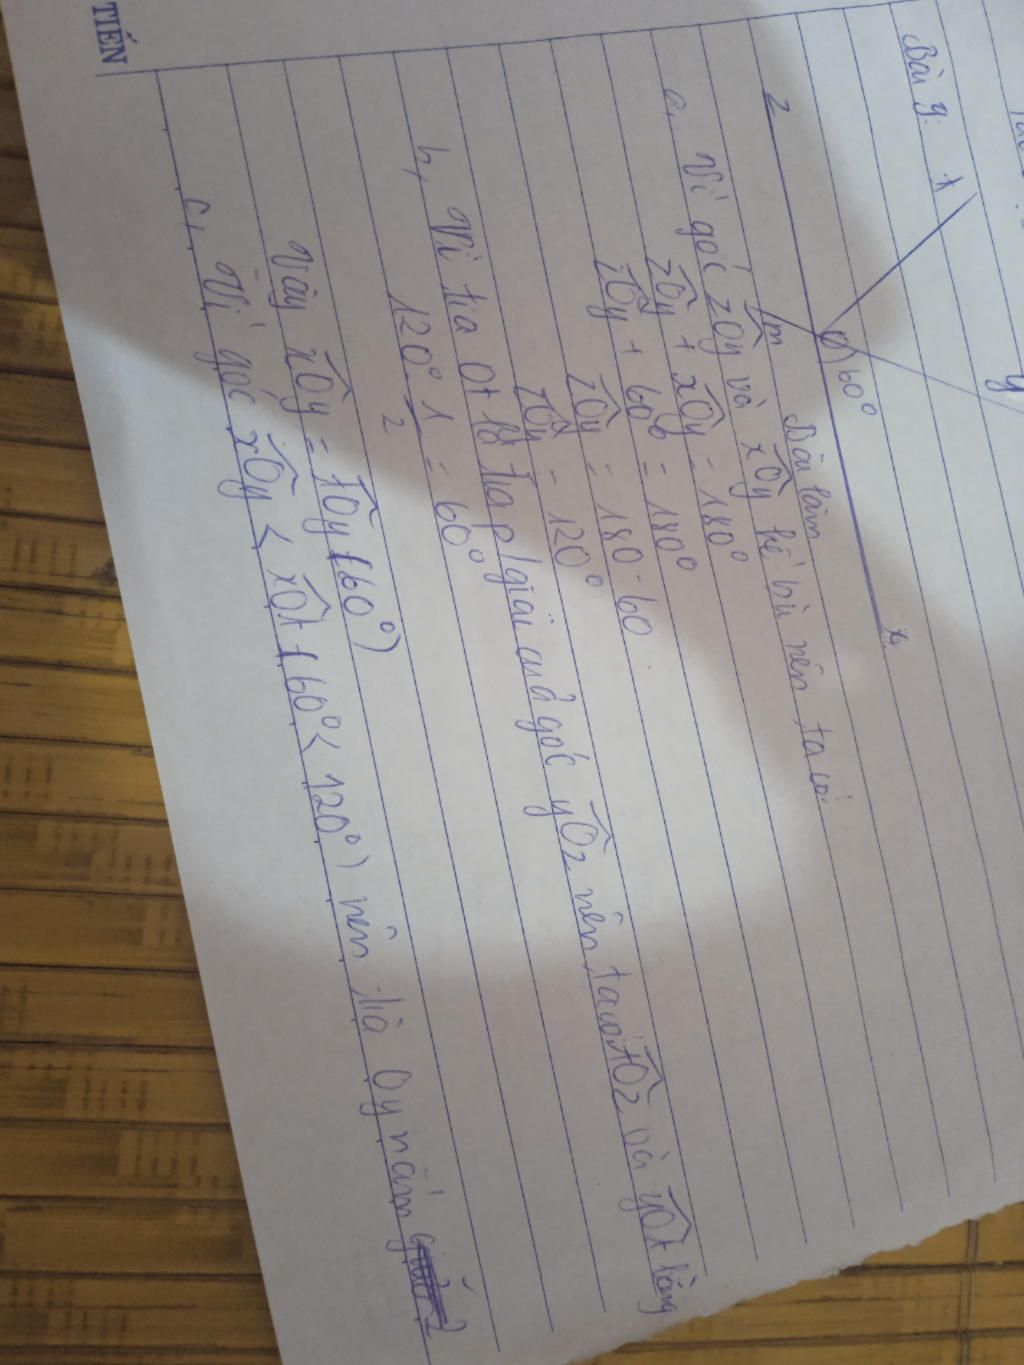 Bài 4:
t
y
z
O
60°
x
m
Bài làm
a, Vì góc zOy và xOy kề bù nên ta có:
zOy + xOy = 180°
zOy + 60° = 180°
zOy = 180 - 60
zOy = 120°
b, Vì tia Ot là tia p/giải của góc yOz nên ta có: tOz và yOt bằng
120° . 1/2 = 60°
Vậy xOy = tOy (60°)
c, Vì góc xOy < xOt (60° < 120°) nên tia Oy nằm
TIẾN